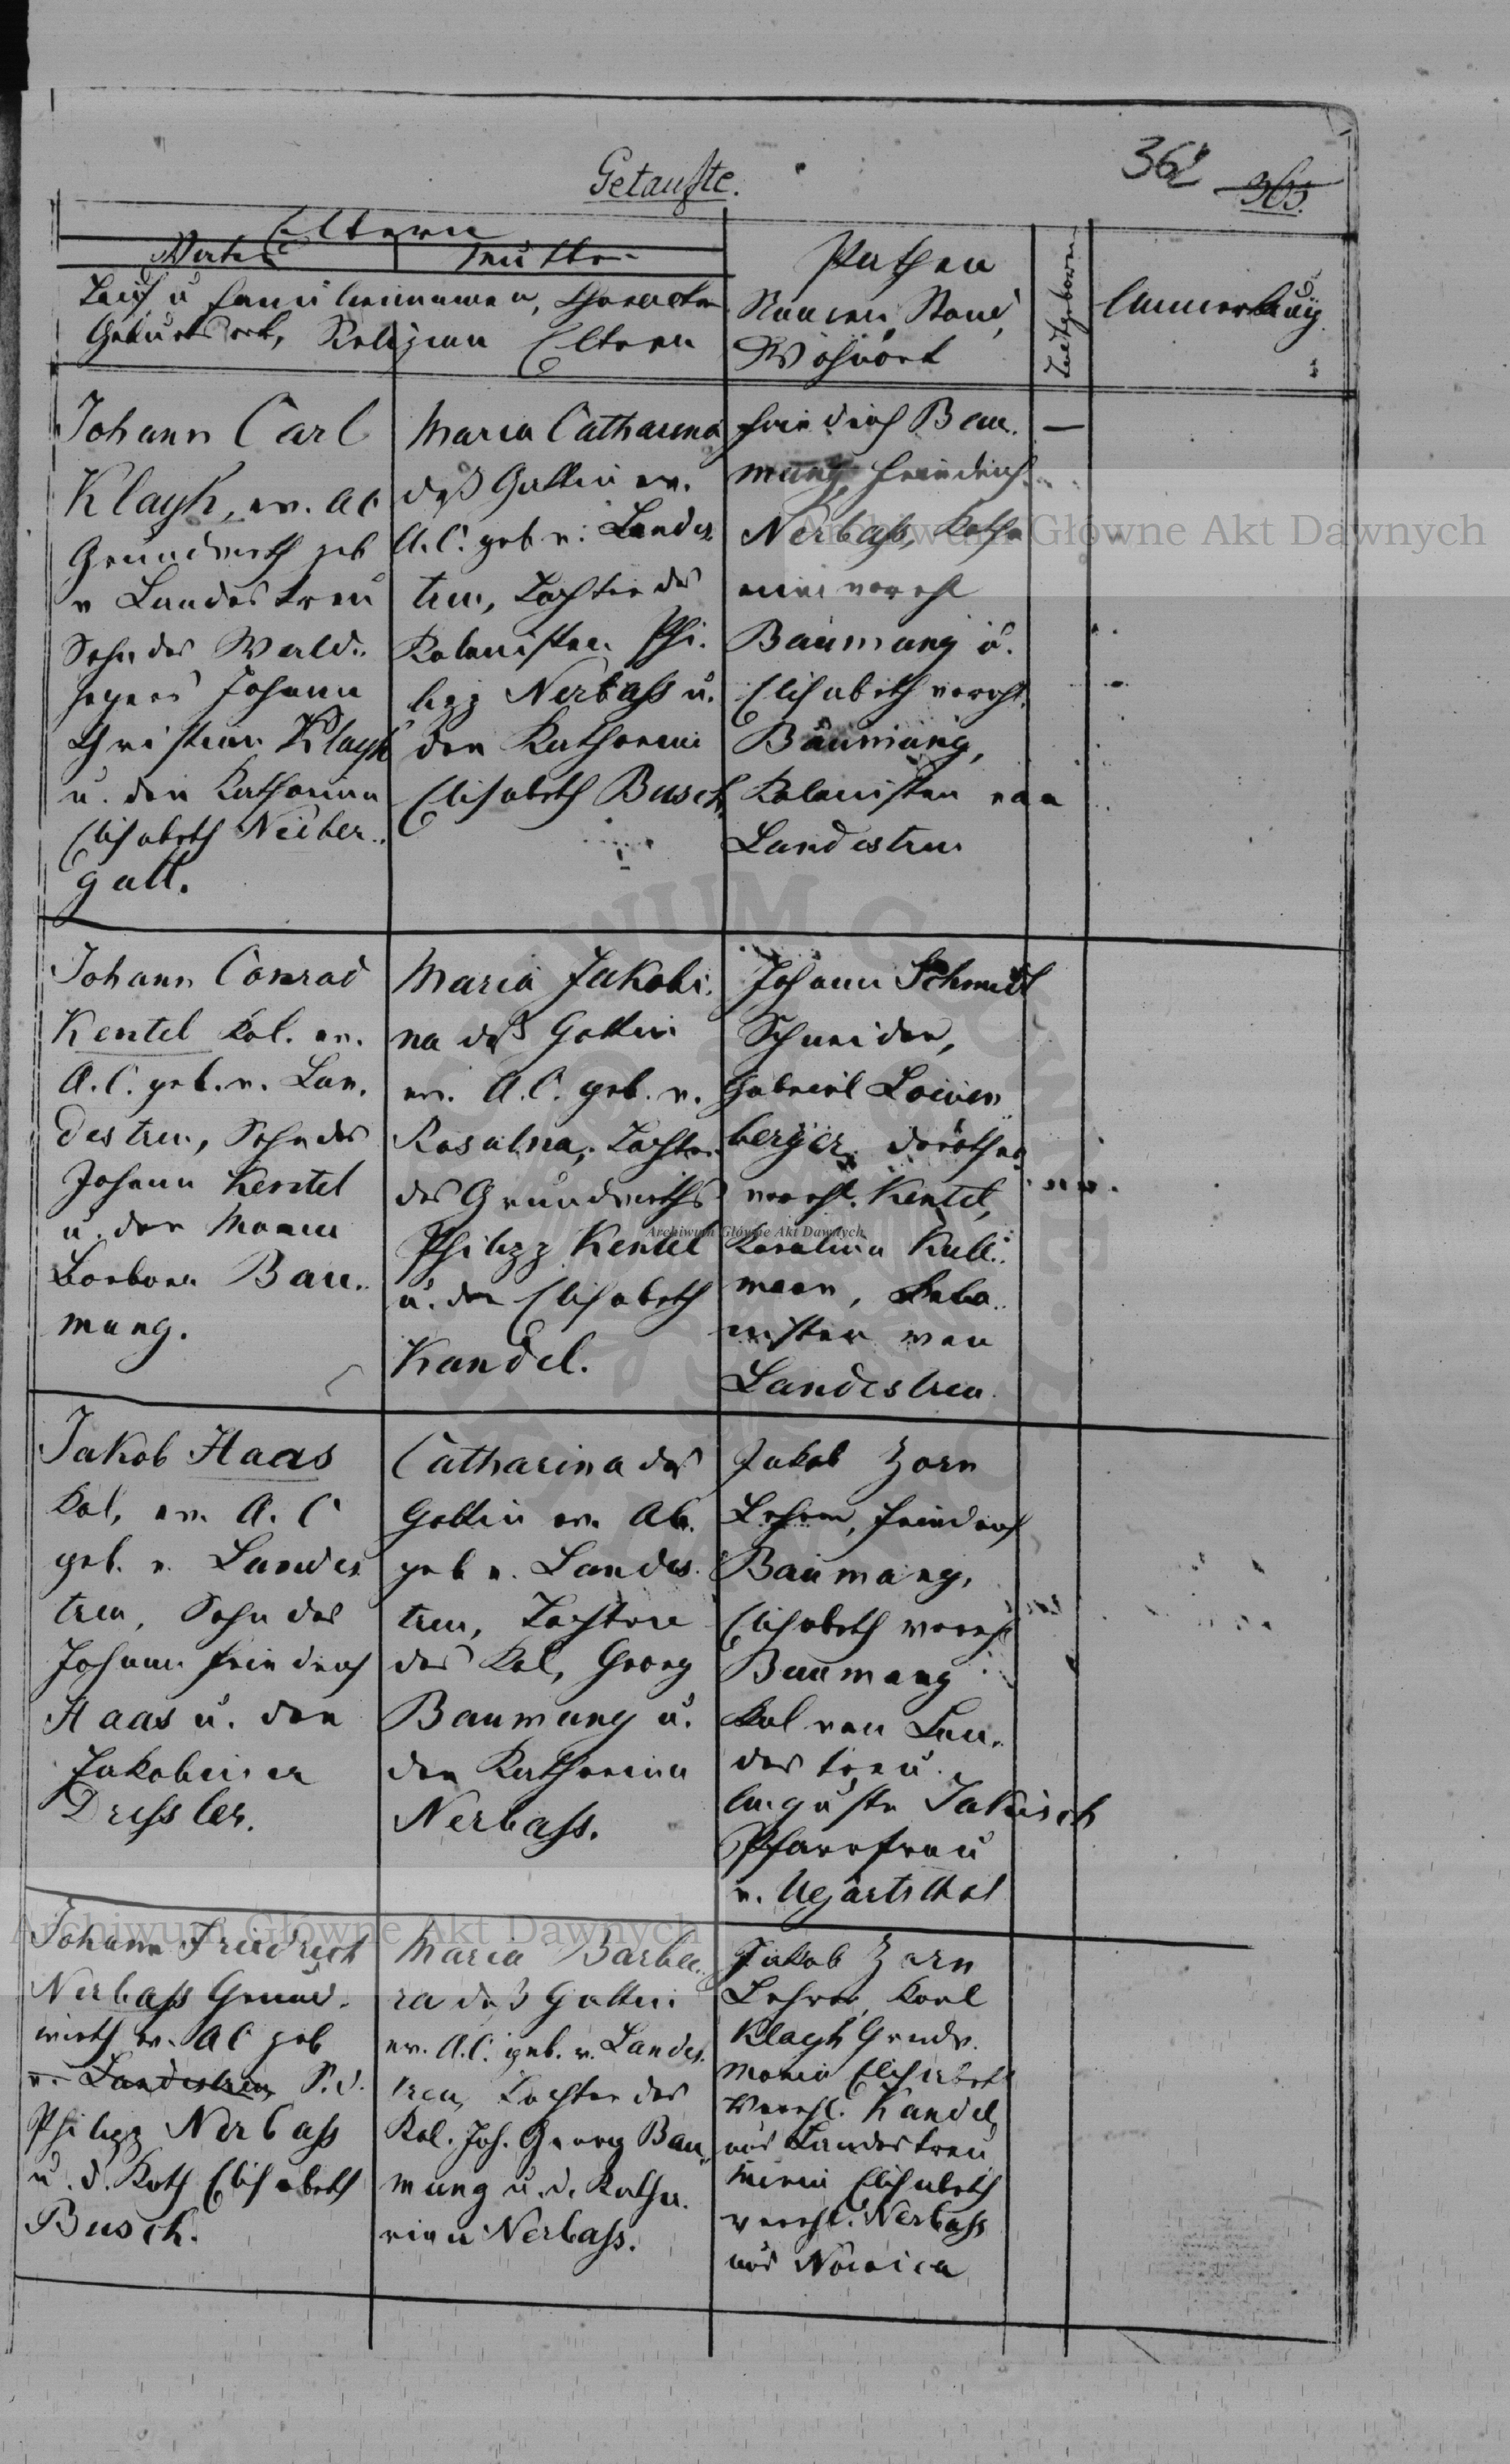 362 363.
Getaufte.
Eltern
Vater
Mutter
Tauf u Familiennamen, Charakter
Geburtsort, Religion Eltern
Pathen
Namen, Stand,
Wohnort
Todtgeboren
Anmerkung
Johann Carl
Klayh, ev. AC
Grundwirth geb
v Landestreu
Sohn des Wald..
hegers Johann
Christian Klayh
u. der Katharina
Elisabeth Neiber..
gall.
Maria Catharina
deß Gattin ev.
A.C. geb v. Landes
treu, Tochter des
Kolonisten Phi.
lipp Nerbass u.
der Katharina
Elisabeth Busch.
Friedrich Bau.
mung, Friedrich
Nerbass, Katha
rina vereh
Baumung u.
Elisabeth vereh.
Baumung,
Kolonisten von
Landestreu
—
Johann Conrad
Kentel Kol. ev.
A.C. geb. v. Lan.
destreu, Sohn des
Johann Kentel
u. der Maria
Barbara Bau..
mung.
Maria Jakobi.
na deß Gattin
ev. A.C. geb. v.
Rosalna, Tochter
des Grundwirths
Philipp Kentel
u. der Elisabeth
Kandel.
Johann Schmidt
Schneider,
Gabriel Löwen
berger, Dorothea
vereh. Kentel,
Karolina Kull..
mann, Kolo..
nisten von
Landestreu.
Jakob Haas
Kol, ev. A. C
geb. v. Landes
treu, Sohn des
Johann Friedrich
Haas u. der
Jakobina
Dressler.
Catharina des
Gattin ev. AC.
geb v. Landes.
treu, Tochter
des Kol, Georg
Baumung u.
der Katharina
Nerbass.
Jakob Zorn
Lehrer, Friedrich
Baumung,
Elisabeth vereh
Baumung
Kol von Lan..
des treu.
Auguste Jakisch
Pfarrfrau
v. Ugartsthal
Johann Friedrich
Nerbass Grund.
wirth ev. AC geb
v. Landestreu, S.d.
Philipp Nerbass
u. d. Kath Elisabeth
Busch.
Maria Barba..
ra deß Gattin
ev. A.C. geb. v. Landes.
treu, Tochter des
Kol. Joh. Georg Bau..
mung u. d. Katha.
rina Nerbass.
Jakob Zorn
Lehrer, Karl
Klayh Grndw.
Maria Elisabeth
Vereh. Kandel,
aus Landestreu
Maria Elisabeth
vereh. Nerbass
aus Nowica
Archiwum Główne Akt Dawnych
Archiwum Główne Akt Dawnych
Archiwum Główne Akt Dawnych